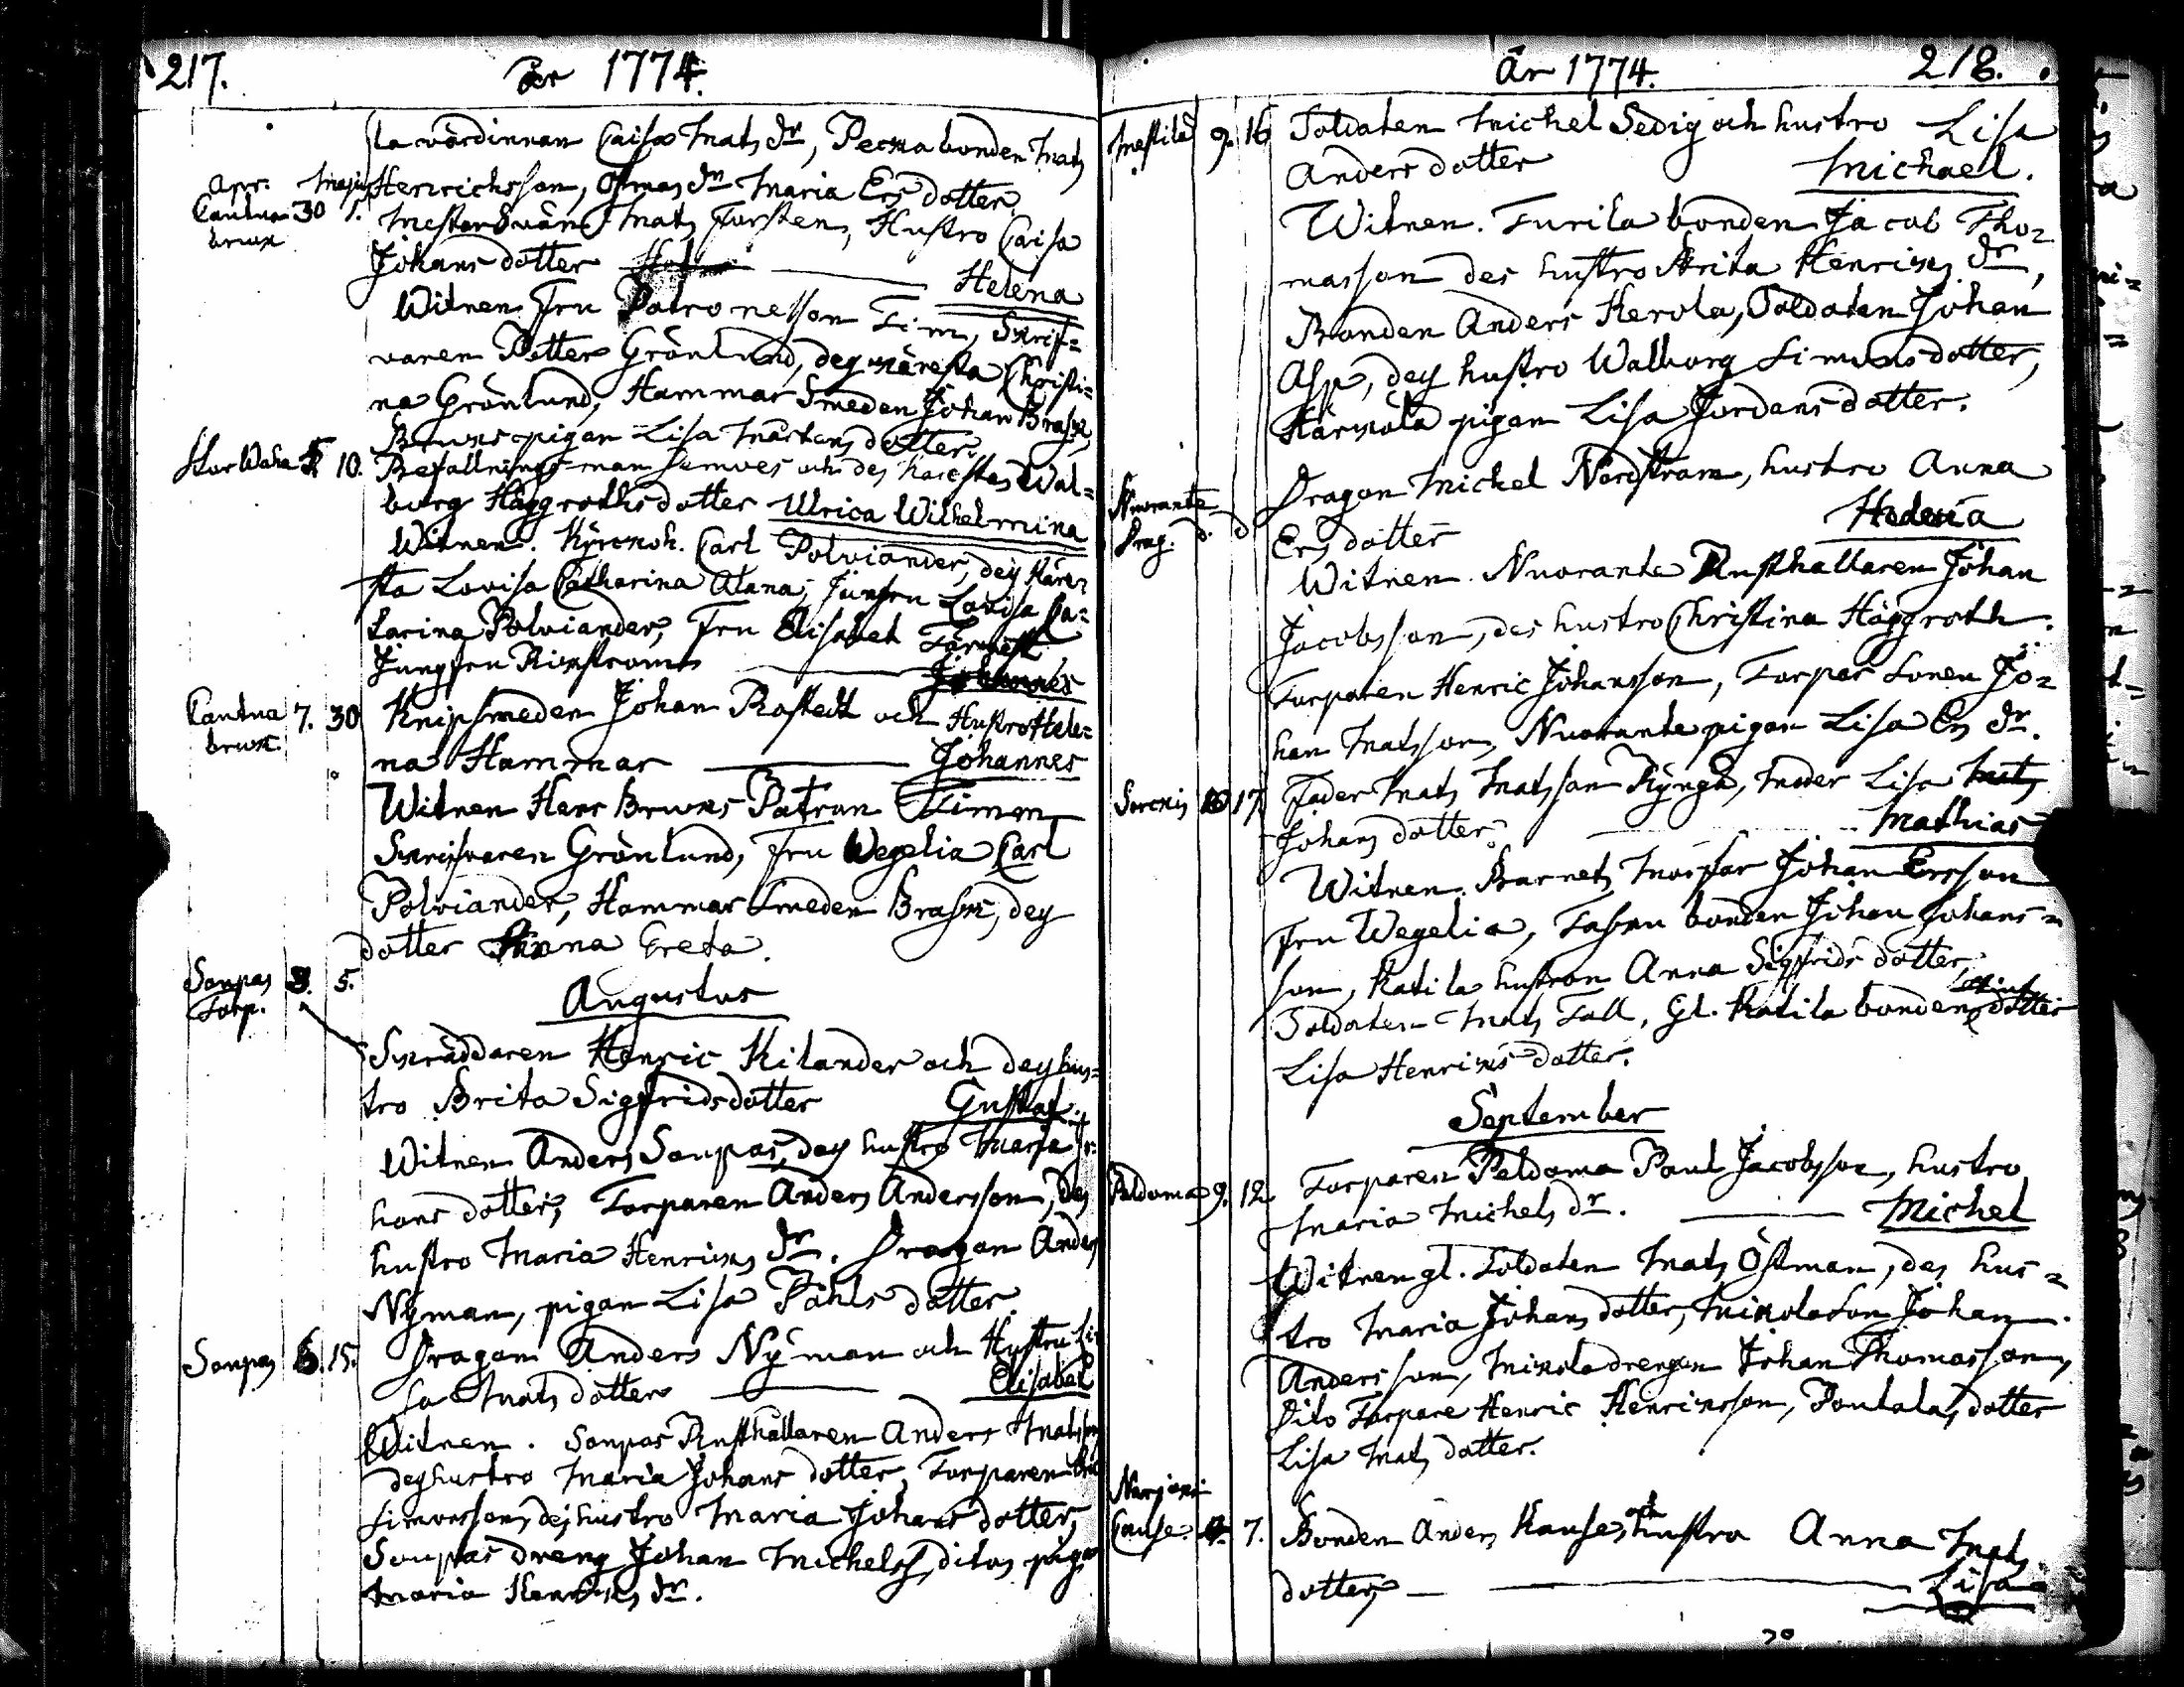 217. År 1774.
la värdinnan Caisa Mats dr, Pecka bonden Mats
Apr. Majus Henrichsson, dr Maria Ers dotter
Cautua 30 1. Mats Forsten, Hustro Caisa
bruk
Johans dotter Helena
Witnen Fru Patronessan Timm, Skrif=
varen Petter Grönlund, des käresta Christi=
na Grönlund, Hammar Smeden Johan Brask,
Bruks pigan Lisa Mårtens dotter.
10. Befallnings man och des käresta Wal=
borg Häggroths dotter Ulrica Wilhelmina
Witnen. Carl Polviander, des käre=
sta Lovisa Catharina Alana, Jungfru Lovisa Ca=
tarina Polviander, Fru Elisabet
Jungfru Johannes
Cautua 7. 30 Knipsmeden Johan Rostedt och Hustro Hele=
bruk.
na Hammar Johannes
Witnen Herr Bruks Patron Timm
Skrifvaren Grönlund, Fru Wegelia Carl
Polviander, Hammar Smeden Brask, des
dotter Anna Greta.
Soupas 3. 5.
Torp.
Augustus
Skräddaren Henric Kilander och des hus=
tro Brita Sigfridsdotter Gustaf.
Witnen Anders Soupas, des hustro Maria Jo=
hans dotter, Torparen Anders Andersson, des
hustro Maria Henriks dr. Dragon Anders
Nyman, pigan Lisa Påhls dotter
Soupas 15. Dragon Anders Nyman och Hustru Li=
sa Mats dotter Elisabet
Witnen. Soupas Rusthållaren Anders Matsson
des hustro Maria Johans dotter, Torparen
Simonsson, des hustro Maria Johans dotter,
Soupas dreng Johan Michelss, ditos pigan
Maria Henriks dr.
År 1774. 218.
Mestilä 9. 16 Soldaten Michel Sedig och hustro Lisa
Anders dotter Michael.
Witnen. Turila bonden Jacob Tho=
masson des hustro Brita Henriks dr,
Bonden Anders Herola, Soldaten Johan
Asp, des hustro Walborg Simons dotter,
pigan Lisa Jordans dotter.
Nuorante Dragon Michel Nordstram, hustro Anna
Drag. d. d
Ers dotter Hedvia
Witnen. Nuoranta Rusthållaren Johan
Jacobsson, des hustro Christina Häggroth.
Torparen Henric Johansson, Torpar Sonen Jo=
han Matsson, Nuoranta pigan Lisa Ers dr.
Sorckis 17 Fader Mats Matsson Kynga, Moder Lisa Mats
Johans dotter. Mathias
Witnen. Barnets Morfar Johan Ersson
Fru Wegelia, bonden Johan Johans=
son, Katila hustron Anna Sigfrids dotter,
Soldaten Mats Tall, Gl. Katila bondens dotter
Lisa Henriks dotter.
September
Peldoma 9. 12. Torparen Peldoma Paul Jacobsson, hustro
Maria Michels dr. Michel
Witnen gl. Soldaten Mats Östman, des hus=
tro Maria Johans dotter, Mikola Son Johan
Andersson, Mikola drengen Johan Thomasson,
Dito Torpare Henric Henriksson, Poutala, dotter
Lisa Mats dotter.
Narjoxi
Cause. 7. Bonden Anders Kause, och hustro Anna Mats
dotter, Lisa